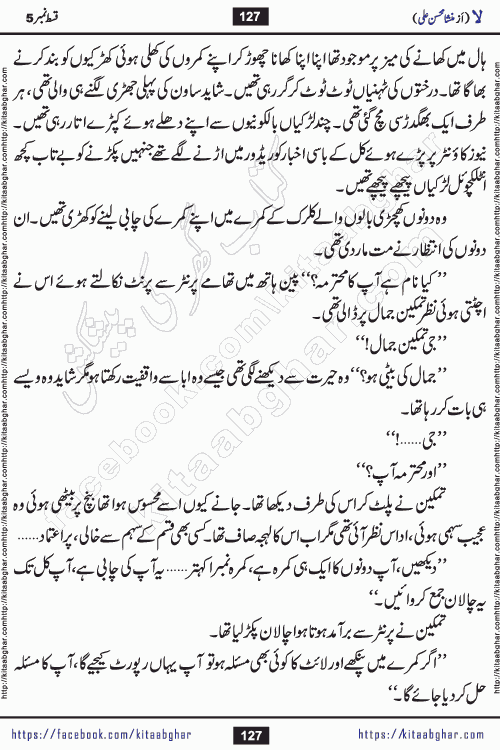 قسط نمبر 5
127
لا (از منشا محسن علی)
ہال میں کھانے کی میز پر موجود تھا اپنا اپنا کھانا چھوڑ کر اپنے کمروں کی کھلی ہوئی کھڑکیوں کو بند کرنے
بھاگا تھا۔ درختوں کی ٹہنیاں ٹوٹ ٹوٹ کر گر رہی تھیں۔ شاید ساون کی پہلی جھڑی لگنے ہی والی تھی، ہر
طرف ایک بھگدڑ سی مچ گئی تھی۔ چند لڑکیاں بالکونیوں سے اپنے دھلے ہوئے کپڑے اتار رہی تھیں۔
نیوز کاؤنٹر پر پڑے ہوئے کل کے باسی اخبار کوریڈور میں اڑنے لگے تھے جنہیں پکڑنے کو بے تاب کچھ
انٹلکچوئل لڑکیاں پیچھے پیچھے تھیں۔
وہ دونوں کھچڑی بالوں والے کلرک کے کمرے میں اپنے کمرے کی چابی لینے کو کھڑی تھیں۔ ان
دونوں کی انتظار نے مت مار دی تھی۔
’’کیا نام ہے آپ کا محترمہ؟‘‘ پین ہاتھ میں تھامے پرنٹر سے پرنٹ نکالتے ہوئے اس نے
اچٹتی ہوئی نظر تمکین جمال پر ڈالی تھی۔
’’جی تمکین جمال!‘‘
’’جمال کی بیٹی ہو؟‘‘ وہ حیرت سے دیکھنے لگی تھی جیسے وہ ابا سے واقفیت رکھتا ہو مگر شاید وہ ویسے
ہی بات کر رہا تھا۔
’’جی……!‘‘
’’اور محترمہ آپ؟‘‘
تمکین نے پلٹ کر اس کی طرف دیکھا تھا۔ جانے کیوں اسے محسوس ہوا تھا بنچ پر بیٹھی ہوئی وہ
عجیب سہمی ہوئی، اداس نظر آئی تھی مگر اب اس کا لہجہ صاف تھا۔ کسی بھی قسم کے سہم سے خالی، پر اعتماد……
’’دیکھیں، آپ دونوں کا ایک ہی کمرہ ہے، کمرہ نمبر اکہتر…… یہ آپ کی چابی ہے، آپ کل تک
یہ چالان جمع کروائیں۔‘‘
تمکین نے پرنٹر سے برآمد ہوتا ہوا چالان پکڑ لیا تھا۔
’’اگر کمرے میں پنکھے اور لائٹ کا کوئی بھی مسئلہ ہو تو آپ یہاں رپورٹ کیجیے گا، آپ کا مسئلہ
حل کر دیا جائے گا۔‘‘
https://facebook.com/kitaabghar
127
https://kitaabghar.com